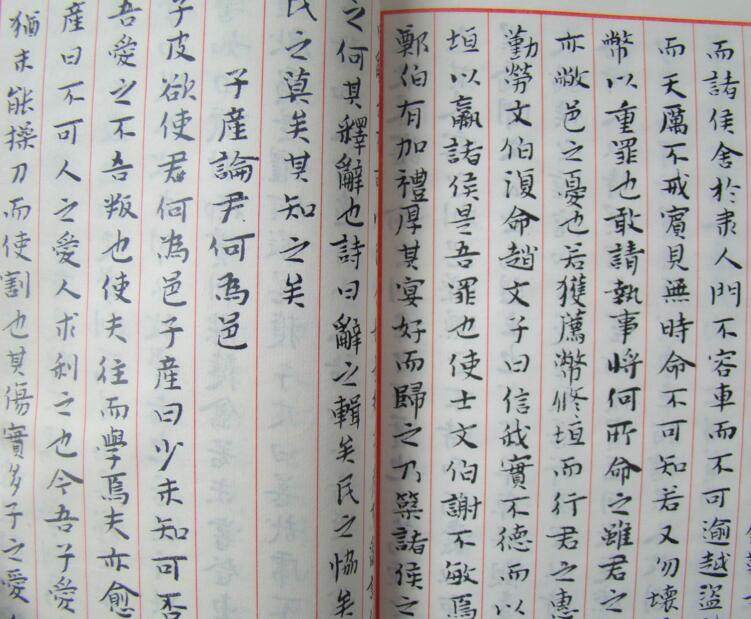 而諸侯舍於隶人門不容車而不可逾越盜
而天厲不戒賓見無時命不可知若又勿壞
幣以重罪也敢請執事將何所命之雖君之
亦敝邑之憂也若獲薦幣修垣而行君之惠
勤勞文伯復命趙文子曰信我實不德而以
垣以贏諸侯是吾罪也使士文伯謝不敏焉
鄭伯有加禮厚其宴好而歸之乃築諸侯之
之何其釋辭也詩曰辭之輯矣民之協矣
民之莫矣其知之矣
子產論尹何為邑
子皮欲使尹何為邑子產曰少未知可否
吾愛之不吾叛也使夫往而學焉夫亦愈
產曰不可人之愛人求利之也今吾子愛
猶未能操刀而使割也其傷實多子之愛